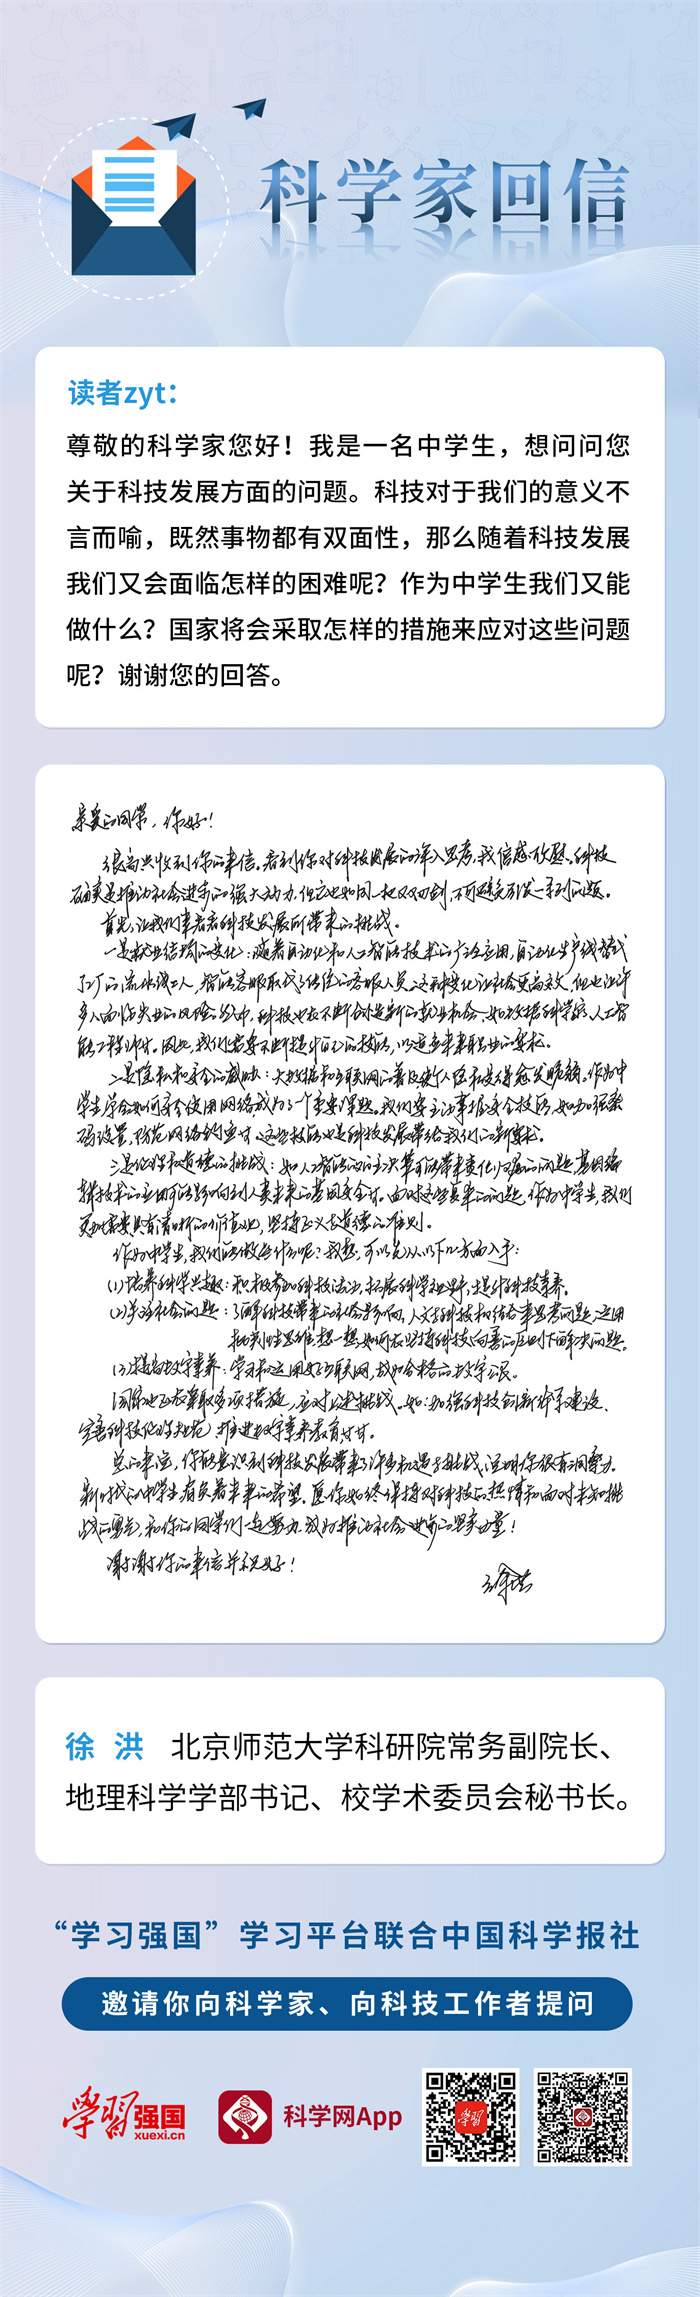 科学家回信
读者zyt：
尊敬的科学家您好！我是一名中学生，想问问您
关于科技发展方面的问题。科技对于我们的意义不
言而喻，既然事物都有双面性，那么随着科技发展
我们又会面临怎样的困难呢？作为中学生我们又能
做什么？国家将会采取怎样的措施来应对这些问题
呢？谢谢您的回答。
亲爱的同学，你好！
很高兴收到你的来信。看到你对科技发展的深入思考，我倍感欣慰。科技
确实是推动社会进步的强大动力，但它也如同一把双刃剑，不可避免引发一系列问题。
首先，让我们来看看科技发展所带来的挑战。
一是就业结构的变化：随着自动化和人工智能技术的广泛应用，自动化生产线替代
了工厂的流水线工人，智能客服取代了传统的客服人员。这种变化让社会更高效，但也让许
多人面临失业的风险。然而，科技也在不断创造新的就业机会，如数据科学家、人工智
能工程师等。因此，我们需要不断提升自己的技能，以适应未来职业的要求。
二是隐私和安全的威胁：大数据和互联网的普及使个人隐私变得愈发脆弱。作为中
学生学会如何安全使用网络成为了一个重要课题。我们要主动掌握安全技能，如加强密
码设置，防范网络钓鱼等。这些技能也是科技发展带给我们的新要求。
三是伦理和道德的挑战：如人工智能的自主决策可能带来责任归属的问题，基因编
辑技术的应用可能影响到人类未来的基因安全等。面对这些复杂的问题，作为中学生，我们
更加需要具有清晰的价值观，坚持正义与道德的准则。
作为中学生，我们能做些什么呢？我想，可以先从以下几方面入手：
(1)培养科学兴趣：积极参加科技活动，拓展科学视野，提升科技素养。
(2)关注社会问题：了解科技带来的社会影响，人文与科技相结合来思考问题，运用
批判性思维想一想，如何在坚持科技向善的原则下解决问题。
(3)提高数字素养：学习和运用好互联网，成为合格的数字公民。
国家也正在采取多项措施，应对上述挑战。如：加强科技创新体系建设、
完善科技伦理规范、推进数字素养教育等等。
总的来说，你能意识到科技发展带来了许多机遇与挑战，说明你很有洞察力。
新时代的中学生肩负着未来的希望。愿你始终保持对科技的热情和面对未知挑
战的勇气，和你的同学们一起努力，成为推动社会进步的坚实力量！
谢谢你的来信并祝好！
徐洪
徐 洪 北京师范大学科研院常务副院长、
地理科学学部书记、校学术委员会秘书长。
“学习强国”学习平台联合中国科学报社
邀请你向科学家、向科技工作者提问
学习强国
xuexi.cn
科学网App